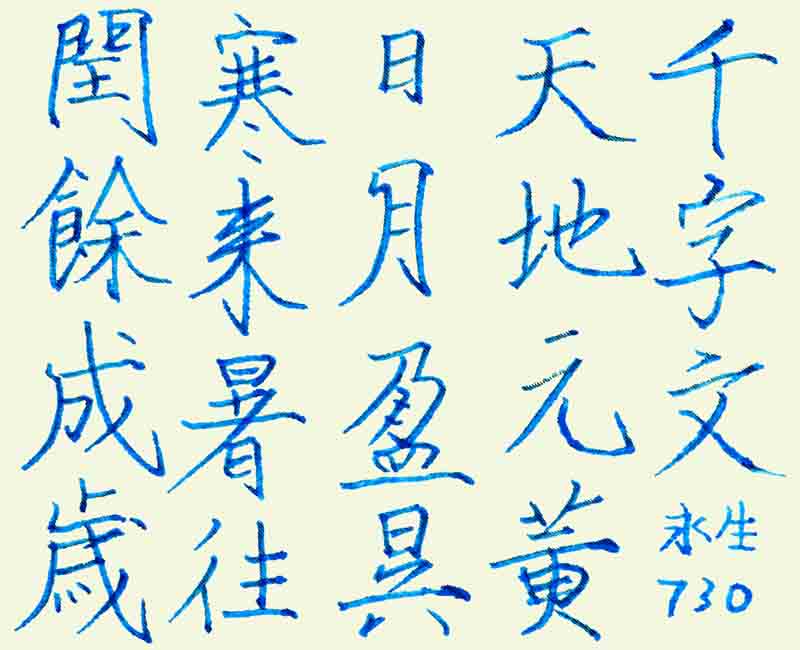 千字文
永生
730
天地元黄
日月盈昃
寒来暑往
閏餘成歳